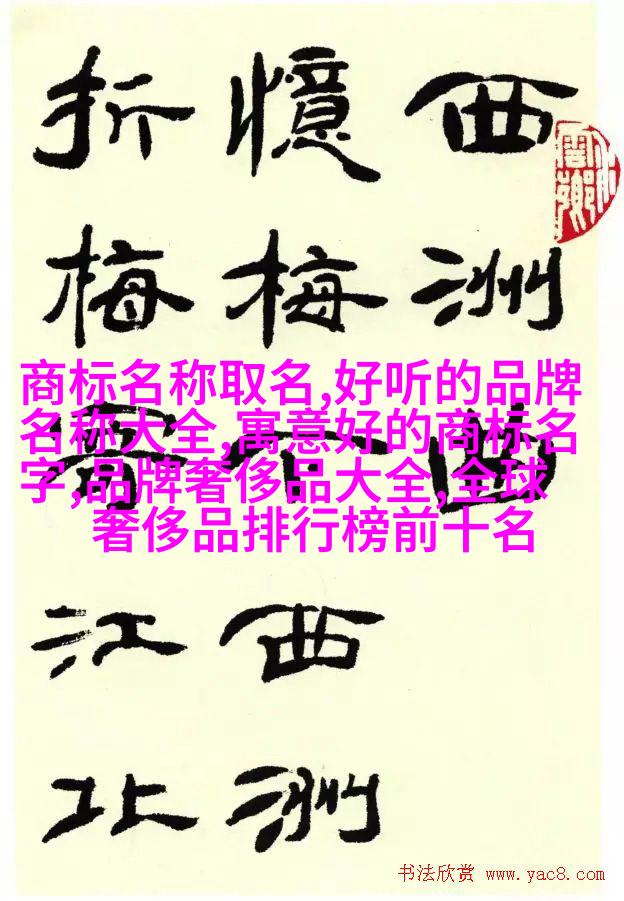 西洲曲
憶梅下西洲
折梅寄江北
商标名称取名,好听的品牌
名称大全,寓意好的商标名
字,品牌奢侈品大全,全球
奢侈品排行榜前十名
书法欣赏 www.yac8.com